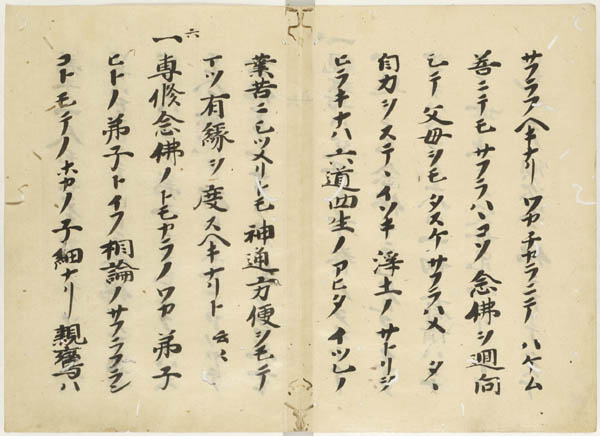 サフラフヘキナリワカチカラニテハケム
善ニテモサフラハヽコソ念佛ヲ迴向
シテ父母ヲモタスケサフラハメタヽ
自力ヲステヽイソキ浄土ノサトリヲ
ヒラキナハ六道四生ノアヒタイツレノ
業苦ニシツメリトモ神通方便ヲモテ
マツ有縁ヲ度スヘキナリト云々
六
一専修念佛ノトモカラノワカ弟子
ヒトノ弟子トイフ相論ノサフラフラン
コトモテノホカノ子細ナリ親鸞ハ